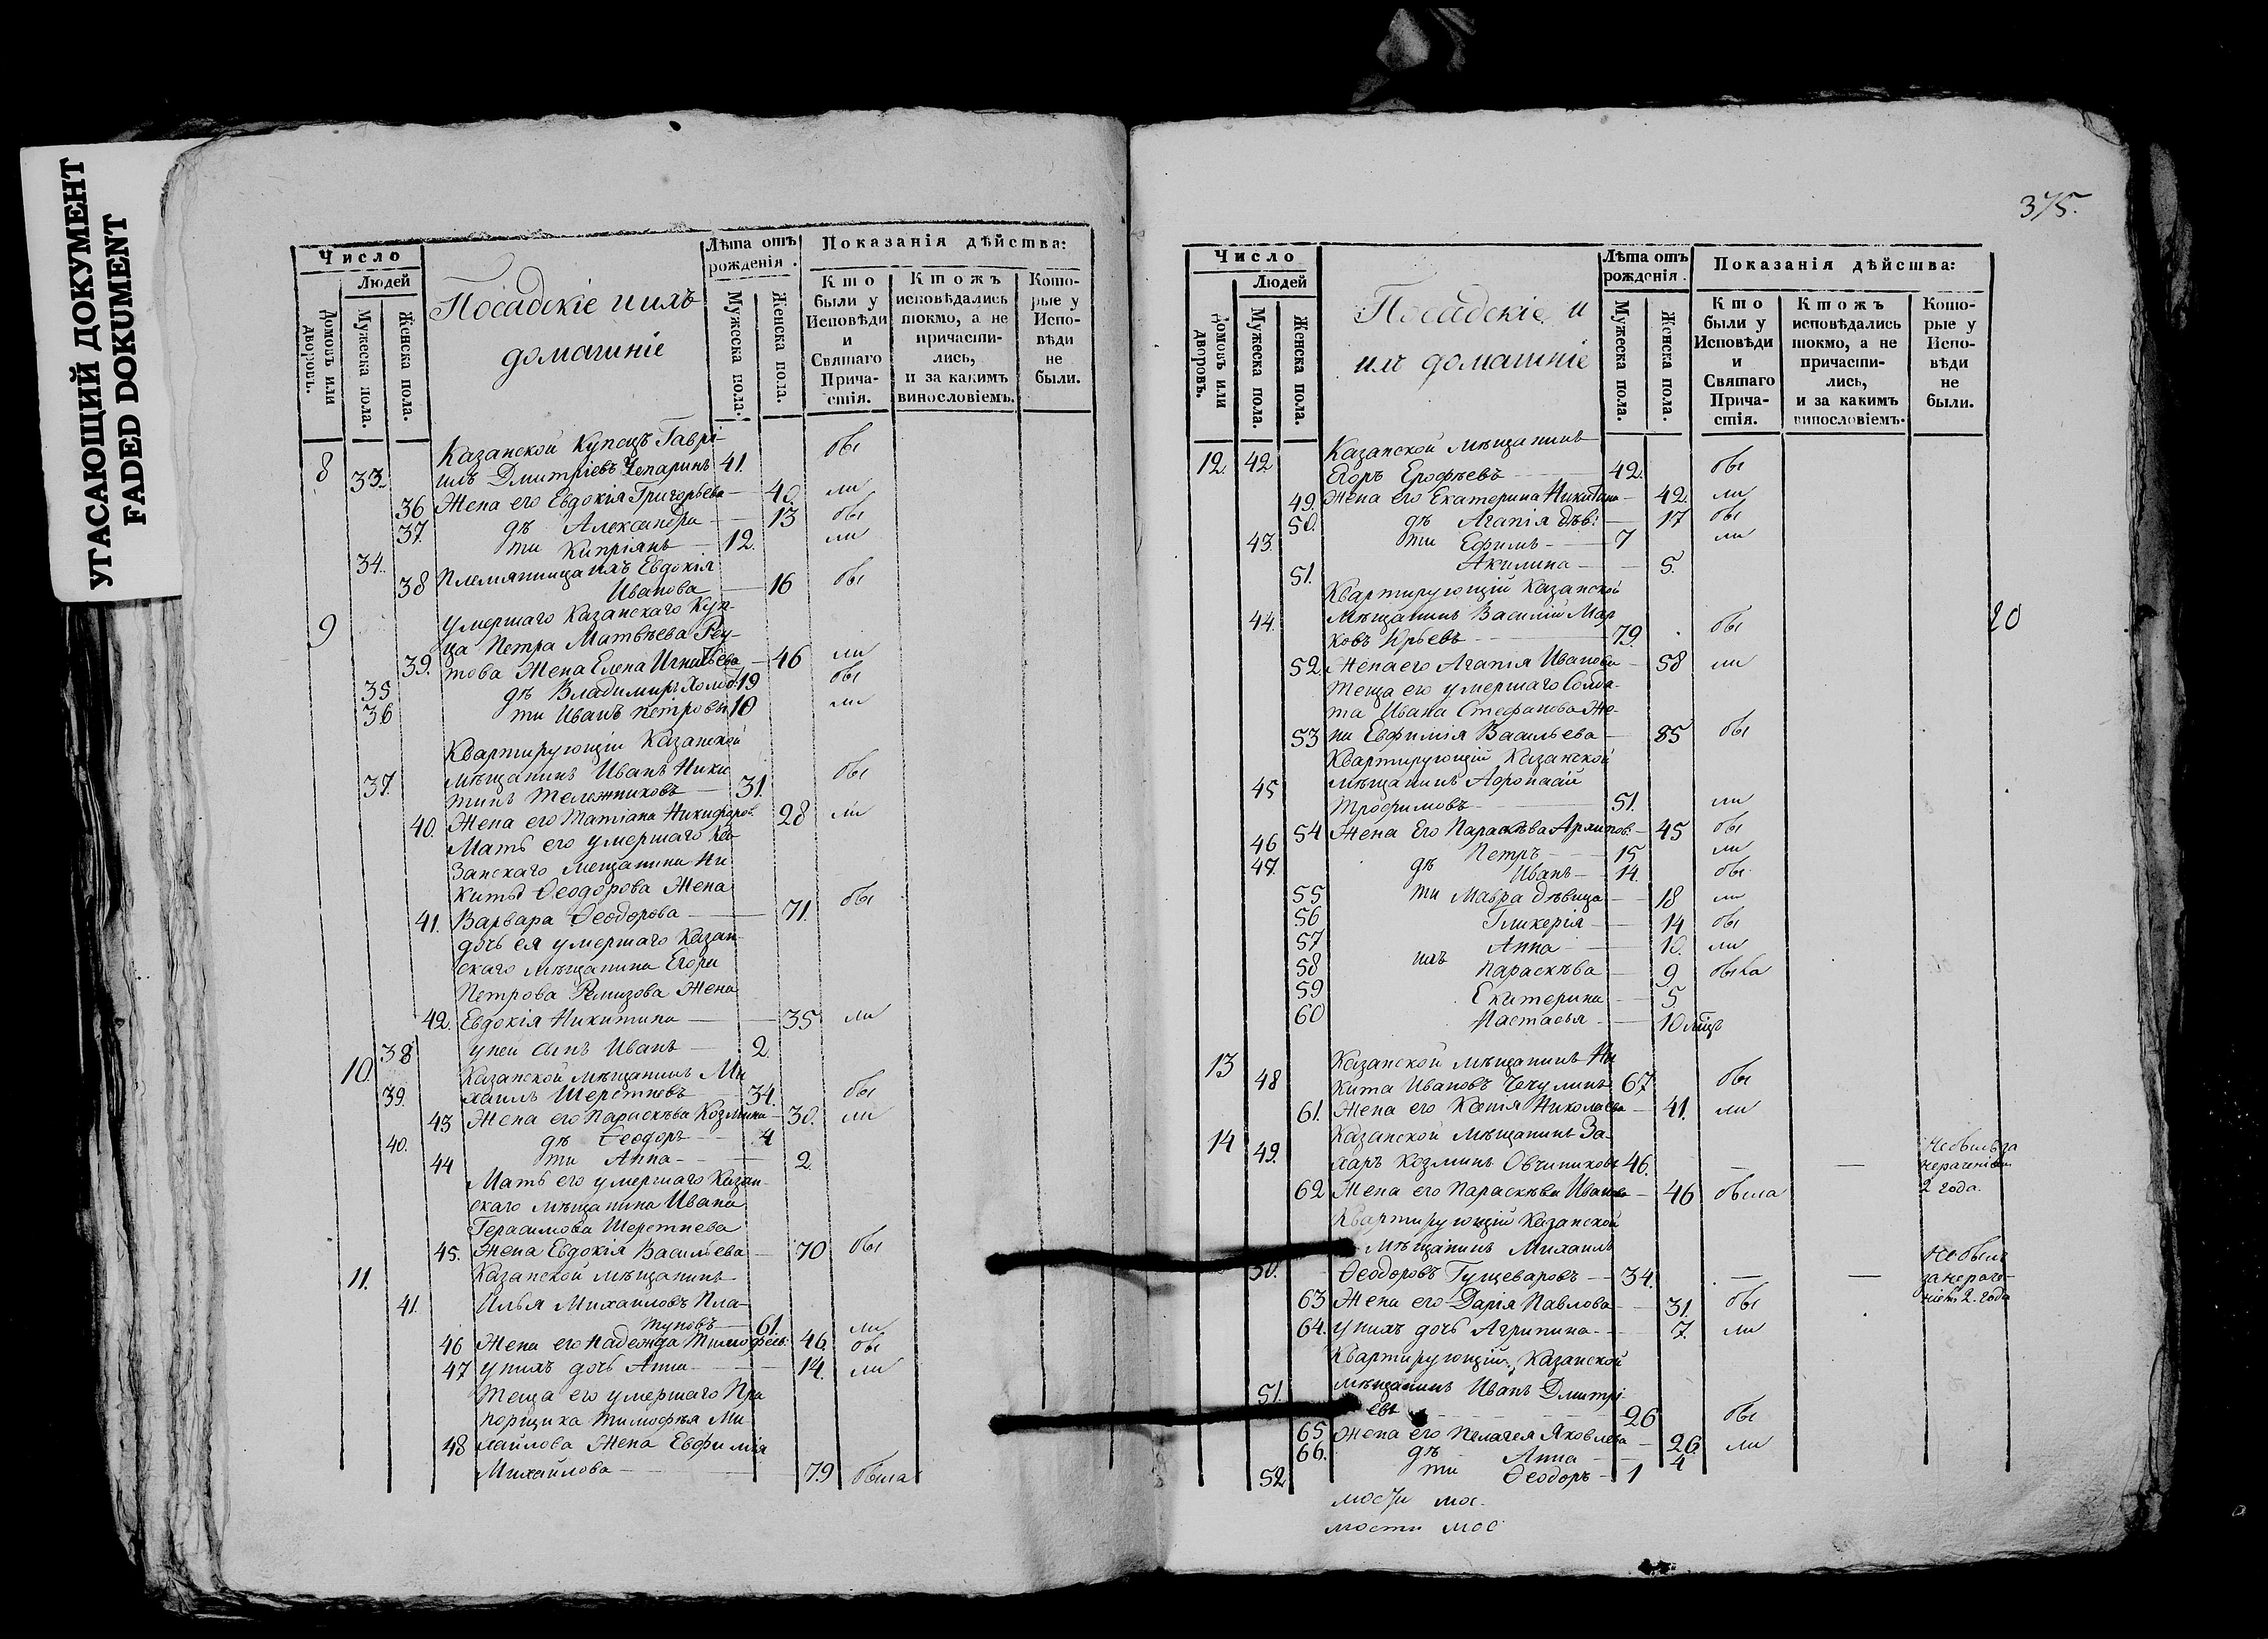 УГАСАЮЩИЙ ДОКУМЕНТ
FADED DOKUMENT
Число
Людей
Домовъ или дворовъ.
Мужеска пола.
Женска пола.
Посадскіе и ихъ
домашніе
Лѣта отъ
рожденія.
Мужеска пола.
Женска пола.
Показанія дѣйства:
Кто
были у
Исповѣди
и
Святаго
Прича-
стія.
Ктожъ
исповѣдались
токмо, а не
причасти-
лись,
и за какимъ
винословіемъ.
Кото-
рые у
Испо-
вѣди
не
были.
Казанской Купецъ Гаврі-
8 33. илъ Дмитріевъ Чепаринъ 41. бы
36 Жена его Евдокія Григорьева 40. ли
37. дѣ Александра 13 бы
34. ти Кипріянъ 12. ли
Племянница ихъ Евдокія
38 Иванова 16 бы
9 умершаго Казанскаго Куп-
ца Петра Матвѣева Реу-
39. това Жена Елена Игнатьева 46 ли
35 дѣ Владимиръ Холос: 19 бы
36 ти Иванъ Петровы 10 ли
Квартирующіи Казанской
37. мѣщанинъ Иванъ Ники
тинъ Тележниковъ 31. бы
40. Жена его Татіана Никифоров: 28 ли
Мать его умершаго Ка
занскаго мещанина Ни
киты Ѳеодорова Жена
41. Варвара Ѳеодорова 71. бы
дочь ея умершаго Казан-
скаго мѣщанина Егора
Петрова Ремизова Жена
42. Евдокія Никитина 35 ли
38 у ней сынъ Иванъ 2.
10. Казанской мѣщанинъ Ми
39. хаилъ Шерстневъ 34. бы
43 Жена его Параскѣва Козмина 30. ли
40. дѣ Ѳеодоръ 4
44 ти Анна 2.
Мать его умершаго Казан-
скаго мѣщанина Ивана
Герасимова Шерстнева
45. Жена Евдокія Васильева 70 бы
11. Казанской мѣщанинъ
41. Илья Михаиловъ Пла-
туновъ 61. ли
46 Жена его Надежда Тимофеів: 46. бы
47 у нихъ дочь Анна 14. ли
Теща его умершаго Пра
порщика Тимофѣя Ми
48 хайлова Жена Евфимія
Михайлова 79 была
375.
Число
Людей
Домовъ или дворовъ.
Мужеска пола.
Женска пола.
Посадскіе и
ихъ домашніе
Лѣта отъ
рожденія.
Мужеска пола.
Женска пола.
Показанія дѣйства:
Кто
были у
Исповѣди
и
Святаго
Прича-
стія.
Ктожъ
исповѣдались
токмо, а не
причасти-
лись,
и за какимъ
винословіемъ.
Кото-
рые у
Испо-
вѣди
не
были.
12. 42 Казанской мѣщанинъ
Егоръ Ерофѣевъ 42. бы
49. Жена его Екатерина Никитина 42. ли
50. дѣ Агапія дѣв: 17 бы
43. ти Ефимъ 7 ли
51. Акилина 5.
Квартирующій Казанской
44. мѣщанинъ Василій Мар
ковъ Юрьевъ 79. бы
20
52. Жена его Агапія Иванова 58 ли
Теща его умершаго Солда-
та Ивана Стефанова Же-
53 на Евфимія Васильева 85 бы
Квартирующій Казанской
45 мѣщанинъ Афонасій
Трофимовъ 51. ли
54 Жена Его Параскѣва Архипов: 45 бы
46 Петръ 15 ли
47. дѣ Иванъ 14. бы
55 ти Мавра дѣвица 18 ли
56 Гликерія 14 бы
57 Анна 10. ли
58 ихъ Параскѣва 9 была
59 Екатерина 5
60 Настасья 10 мцъ
13 Казанской мѣщанинъ Ни
48 кита Ивановъ Чекулинъ 67 бы
61. Жена его Ксенія Николаева 41. ли
14 Казанской мѣщанинъ За-
49. харъ Козминъ Овчиниковъ 46. Не былъ за
нераченіемъ
2 года.
62 Жена его Параскѣва Иванова 46 была
Квартирующій Казанской
мѣщанинъ Михаилъ
50. Ѳеодоровъ Гущеваровъ 34. Не былъ
за нераче-
ніемъ 2. года
63 Жена его Дарія Павлова 31. бы
64. у нихъ дочь Агрипина 7. ли
Квартирующій Казанской
51. мѣщанинъ Иванъ Дмитрі
евъ 26 бы
65 Жена его Пелагея Яковлева 26 ли
66. дѣ Анна 4
52 ти Ѳеодоръ 1
мости мос